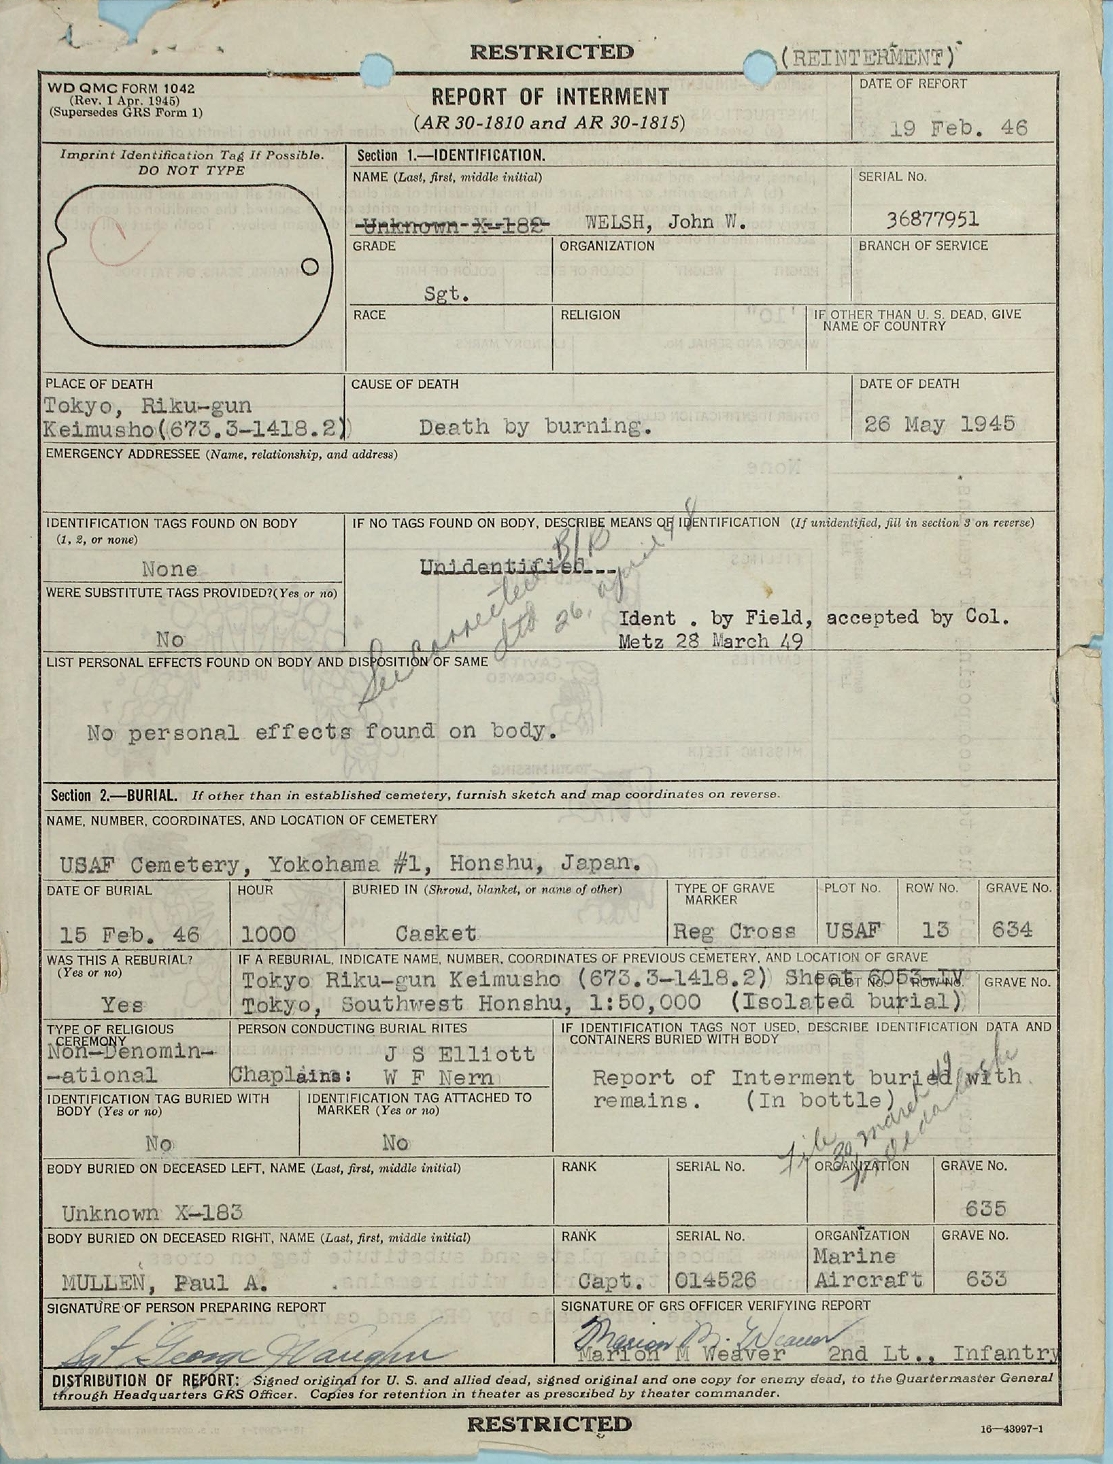 RESTRICTED
(REINTERMENT)
WD QMC FORM 1042
(Rev. 1 Apr. 1945)
(Supersedes GRS Form 1)
REPORT OF INTERMENT
(AR 30-1810 and AR 30-1815)
DATE OF REPORT
19 Feb. 46
Imprint Identification Tag If Possible.
DO NOT TYPE
Section 1.—IDENTIFICATION.
NAME (Last, first, middle initial)
Unknown X-182 WELSH, John W.
SERIAL No.
36877951
GRADE
Sgt.
ORGANIZATION
BRANCH OF SERVICE
RACE
RELIGION
IF OTHER THAN U. S. DEAD, GIVE
NAME OF COUNTRY
PLACE OF DEATH
Tokyo, Riku-gun
Keimusho(673.3-1418.2)
CAUSE OF DEATH
Death by burning.
DATE OF DEATH
26 May 1945
EMERGENCY ADDRESSEE (Name, relationship, and address)
IDENTIFICATION TAGS FOUND ON BODY
(1, 2, or none)
None
IF NO TAGS FOUND ON BODY, DESCRIBE MEANS OF IDENTIFICATION (If unidentified, fill in section 3 on reverse)
Unidentified
See corrected B/R
dtd 26, april 48
WERE SUBSTITUTE TAGS PROVIDED?(Yes or no)
No
Ident . by Field, accepted by Col.
Metz 28 March 49
LIST PERSONAL EFFECTS FOUND ON BODY AND DISPOSITION OF SAME
No personal effects found on body.
Section 2.—BURIAL. If other than in established cemetery, furnish sketch and map coordinates on reverse.
NAME, NUMBER, COORDINATES, AND LOCATION OF CEMETERY
USAF Cemetery, Yokohama #1, Honshu, Japan.
DATE OF BURIAL
15 Feb. 46
HOUR
1000
BURIED IN (Shroud, blanket, or name of other)
Casket
TYPE OF GRAVE
MARKER
Reg Cross
PLOT No.
USAF
ROW No.
13
GRAVE No.
634
WAS THIS A REBURIAL?
(Yes or no)
Yes
IF A REBURIAL, INDICATE NAME, NUMBER, COORDINATES OF PREVIOUS CEMETERY, AND LOCATION OF GRAVE
Tokyo Riku-gun Keimusho (673.3-1418.2) Sheet 6053-IV
PLOT No. ROW No. GRAVE No.
Tokyo, Southwest Honshu, 1:50,000 (Isolated burial)
TYPE OF RELIGIOUS
CEREMONY
Non-Denomin-
-ational
PERSON CONDUCTING BURIAL RITES
J S Elliott
Chaplains: W F Nern
IF IDENTIFICATION TAGS NOT USED, DESCRIBE IDENTIFICATION DATA AND
CONTAINERS BURIED WITH BODY
Report of Interment buried with
remains. (In bottle)
File
30 march 49
IDENTIFICATION TAG BURIED WITH
BODY (Yes or no)
No
IDENTIFICATION TAG ATTACHED TO
MARKER (Yes or no)
No
BODY BURIED ON DECEASED LEFT, NAME (Last, first, middle initial)
Unknown X-183
RANK
SERIAL No.
ORGANIZATION
GRAVE No.
635
BODY BURIED ON DECEASED RIGHT, NAME (Last, first, middle initial)
MULLEN, Paul A.
RANK
Capt.
SERIAL No.
014526
ORGANIZATION
Marine
Aircraft
GRAVE No.
633
SIGNATURE OF PERSON PREPARING REPORT
Sgt George Vaughn
SIGNATURE OF GRS OFFICER VERIFYING REPORT
Marion M. Weaver
Marion M Weaver 2nd Lt., Infantry
DISTRIBUTION OF REPORT: Signed original for U. S. and allied dead, signed original and one copy for enemy dead, to the Quartermaster General
through Headquarters GRS Officer. Copies for retention in theater as prescribed by theater commander.
RESTRICTED
16—43997-1